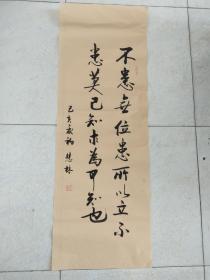 不患無位患所以立不
患莫己知求為可知也
己亥